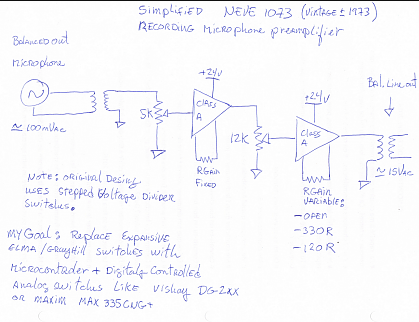 Simplified NEVE 1073 (VINTAGE ± 1973)
RECORDING Microphone preamplifier
Balanced out
Microphone
≈ 100mVAC
5K
+24V
CLASS
A
RGAIN
FIXED
12K
+24V
CLASS
A
RGAIN
VARIABLE:
-OPEN
-330R
-120R
Bal. Line out
≈ 15VAC
NOTE: ORIGINAL Desing
USES Stepped Voltage Divider
Switches.
MY Goal: Replace Expansive
ELMA/GrayHill switches with
Microcontroder + Digitaly Controlled
Analog switches Like Vishay DG-2XX
OR MAXIM MAX335CNG+